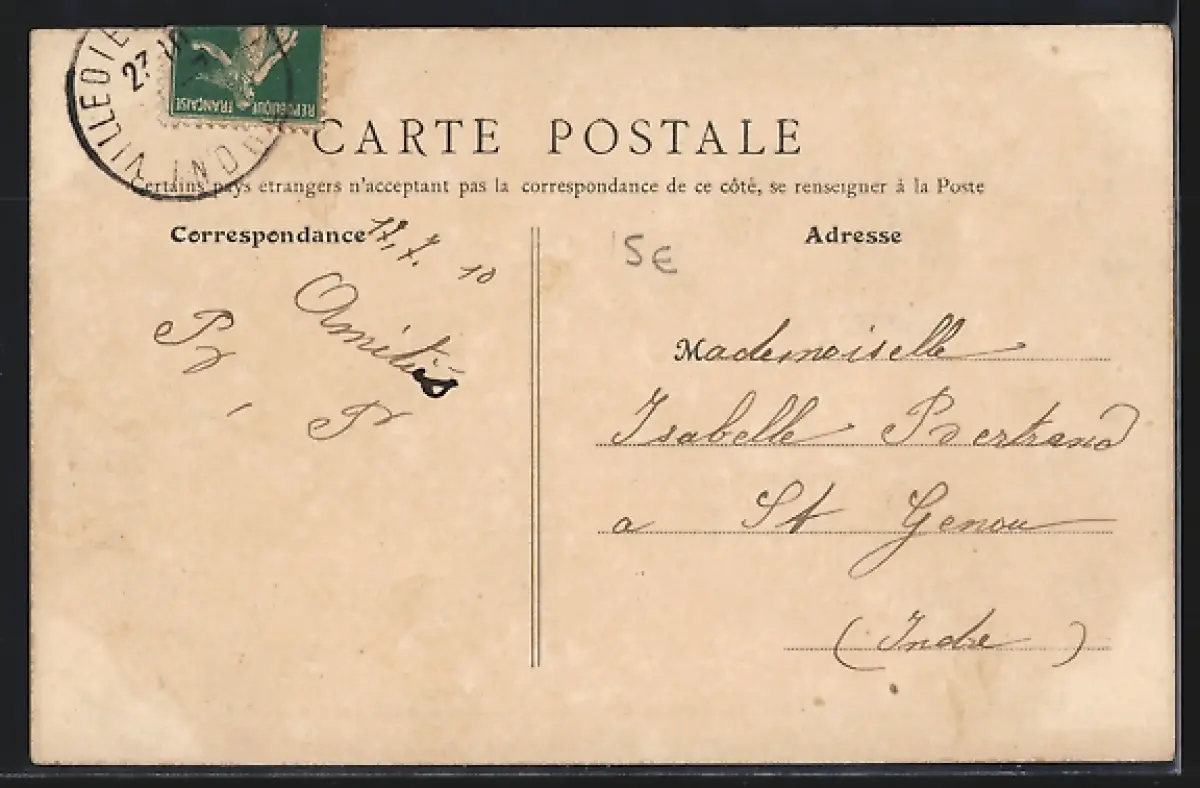 VILLEDIE
23
INDR
REPUBLIQUE FRANÇAISE
CARTE POSTALE
Certains pays etrangers n'acceptant pas la correspondance de ce côté, se renseigner à la Poste
Correspondance
Adresse
17.7. 10
5€
Amitiés
Mademoiselle
Isabelle Bertrand
a St Genou
(Indre)